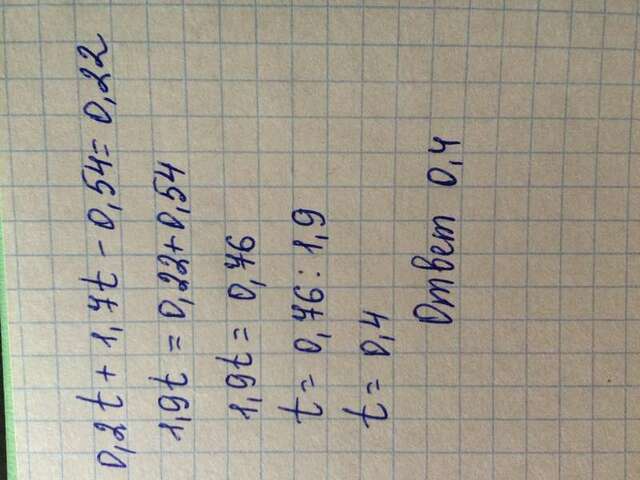 0,2t + 1,7t - 0,54 = 0,22
1,9t = 0,22+0,54
1,9t = 0,76
t = 0,76 : 1,9
t = 0,4
Ответ 0,4